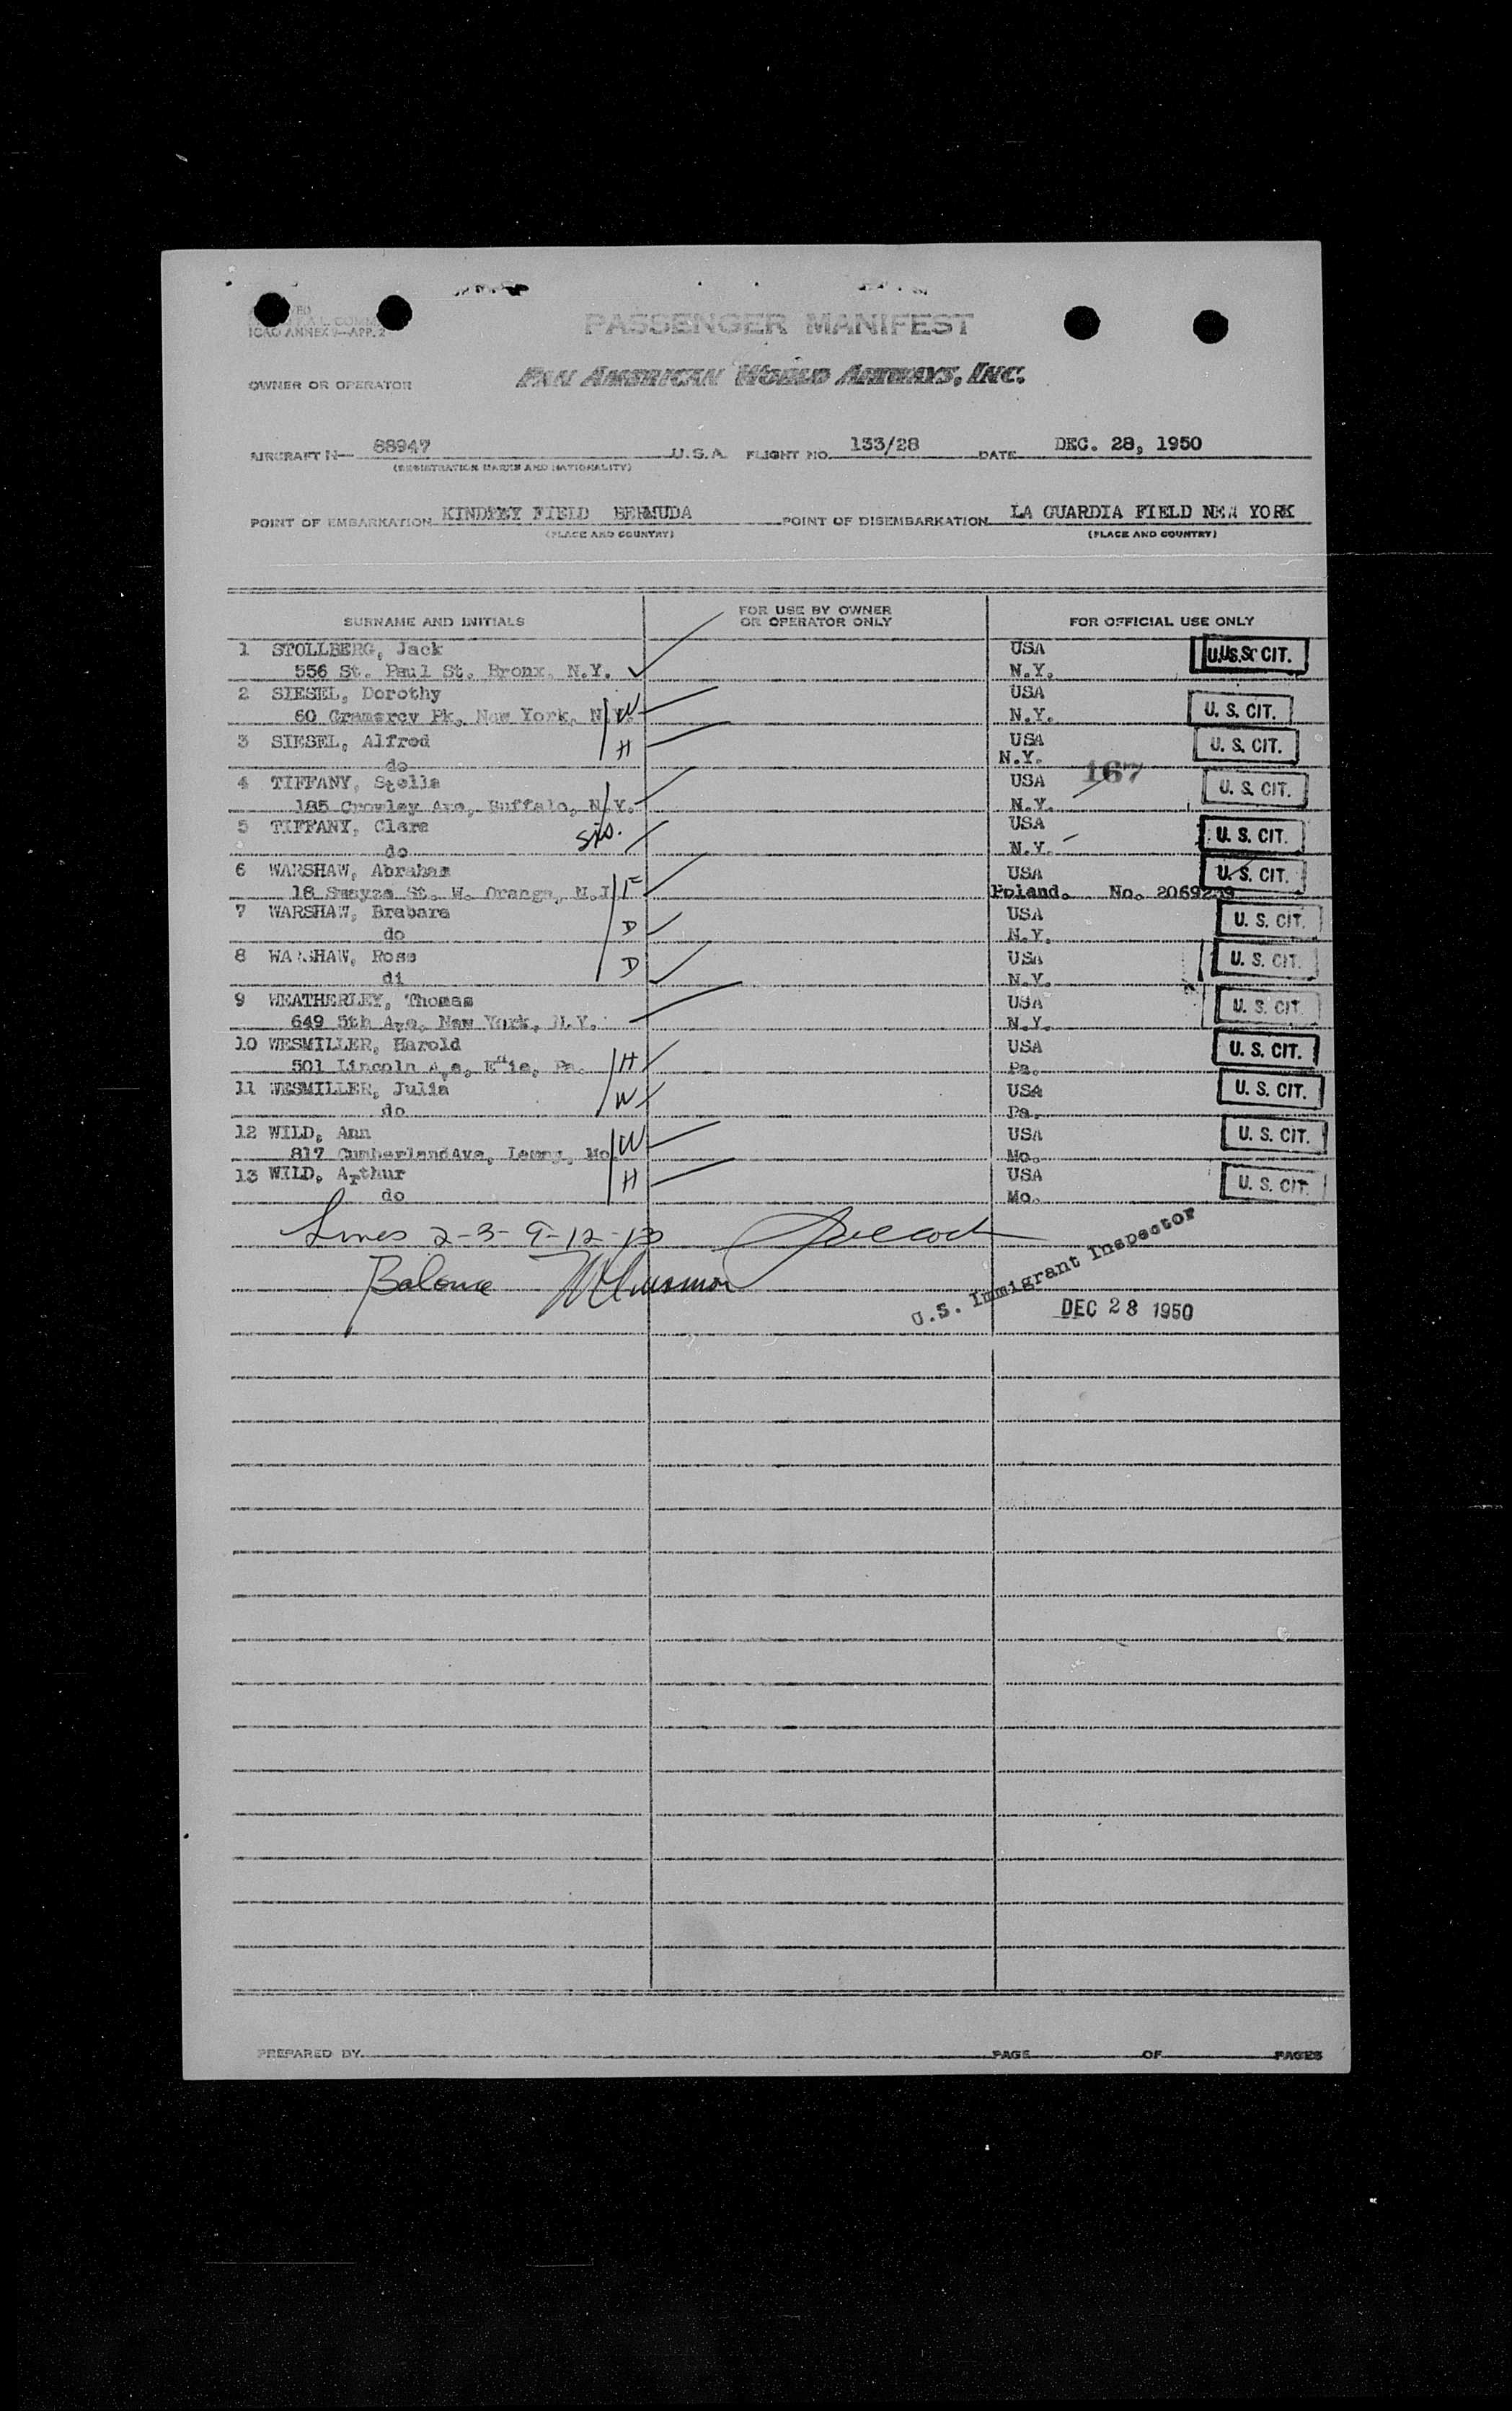 ICAO ANNEX 9—APP. 2
PASSENGER MANIFEST
OWNER OR OPERATOR PAN AMERICAN WORLD AIRWAYS, INC.
AIRCRAFT N— 88947 U.S.A. FLIGHT NO. 133/28 DATE DEC. 28, 1950
(REGISTRATION MARKS AND NATIONALITY)
POINT OF EMBARKATION KINDLEY FIELD BERMUDA POINT OF DISEMBARKATION LA GUARDIA FIELD NEW YORK
(PLACE AND COUNTRY) (PLACE AND COUNTRY)
SURNAME AND INITIALS FOR USE BY OWNER OR OPERATOR ONLY FOR OFFICIAL USE ONLY
1 STOLLBERG, Jack USA U.S. CIT.
556 St. Paul St. Bronx, N.Y. N.Y.
2 SIESEL, Dorothy USA
60 Gramercy Pk, New York, N.Y. W N.Y. U. S. CIT.
3 SIESEL, Alfred H USA U. S. CIT.
do N.Y.
4 TIFFANY, Stella USA 167 U. S. CIT.
185 Crowley Ave, Buffalo, N.Y. N.Y.
5 TIFFANY, Clare sis. USA U. S. CIT.
do N.Y.
6 WARSHAW, Abraham USA U. S. CIT.
18 Swayze St. W. Orange, N.J F Poland. No. 2069239
7 WARSHAW, Brabara D USA U. S. CIT.
do N.Y.
8 WARSHAW, Rose D USA U. S. CIT.
di N.Y.
9 WEATHERLEY, Thomas USA U. S. CIT.
649 5th Ave, New York, N.Y. N.Y.
10 WESMILLER, Harold USA U. S. CIT.
501 Lincoln Ave, Erie, Pa. H Pa.
11 WESMILLER, Julia W USA U. S. CIT.
do Pa.
12 WILD, Ann USA U. S. CIT.
817 CumberlandAve, Lemay, Mo. W Mo.
13 WILD, Arthur H USA U. S. CIT.
do Mo.
Lines 2-3- 9-12-13
Balance
U.S. Immigrant Inspector
DEC 28 1950
PREPARED BY PAGE OF PAGES